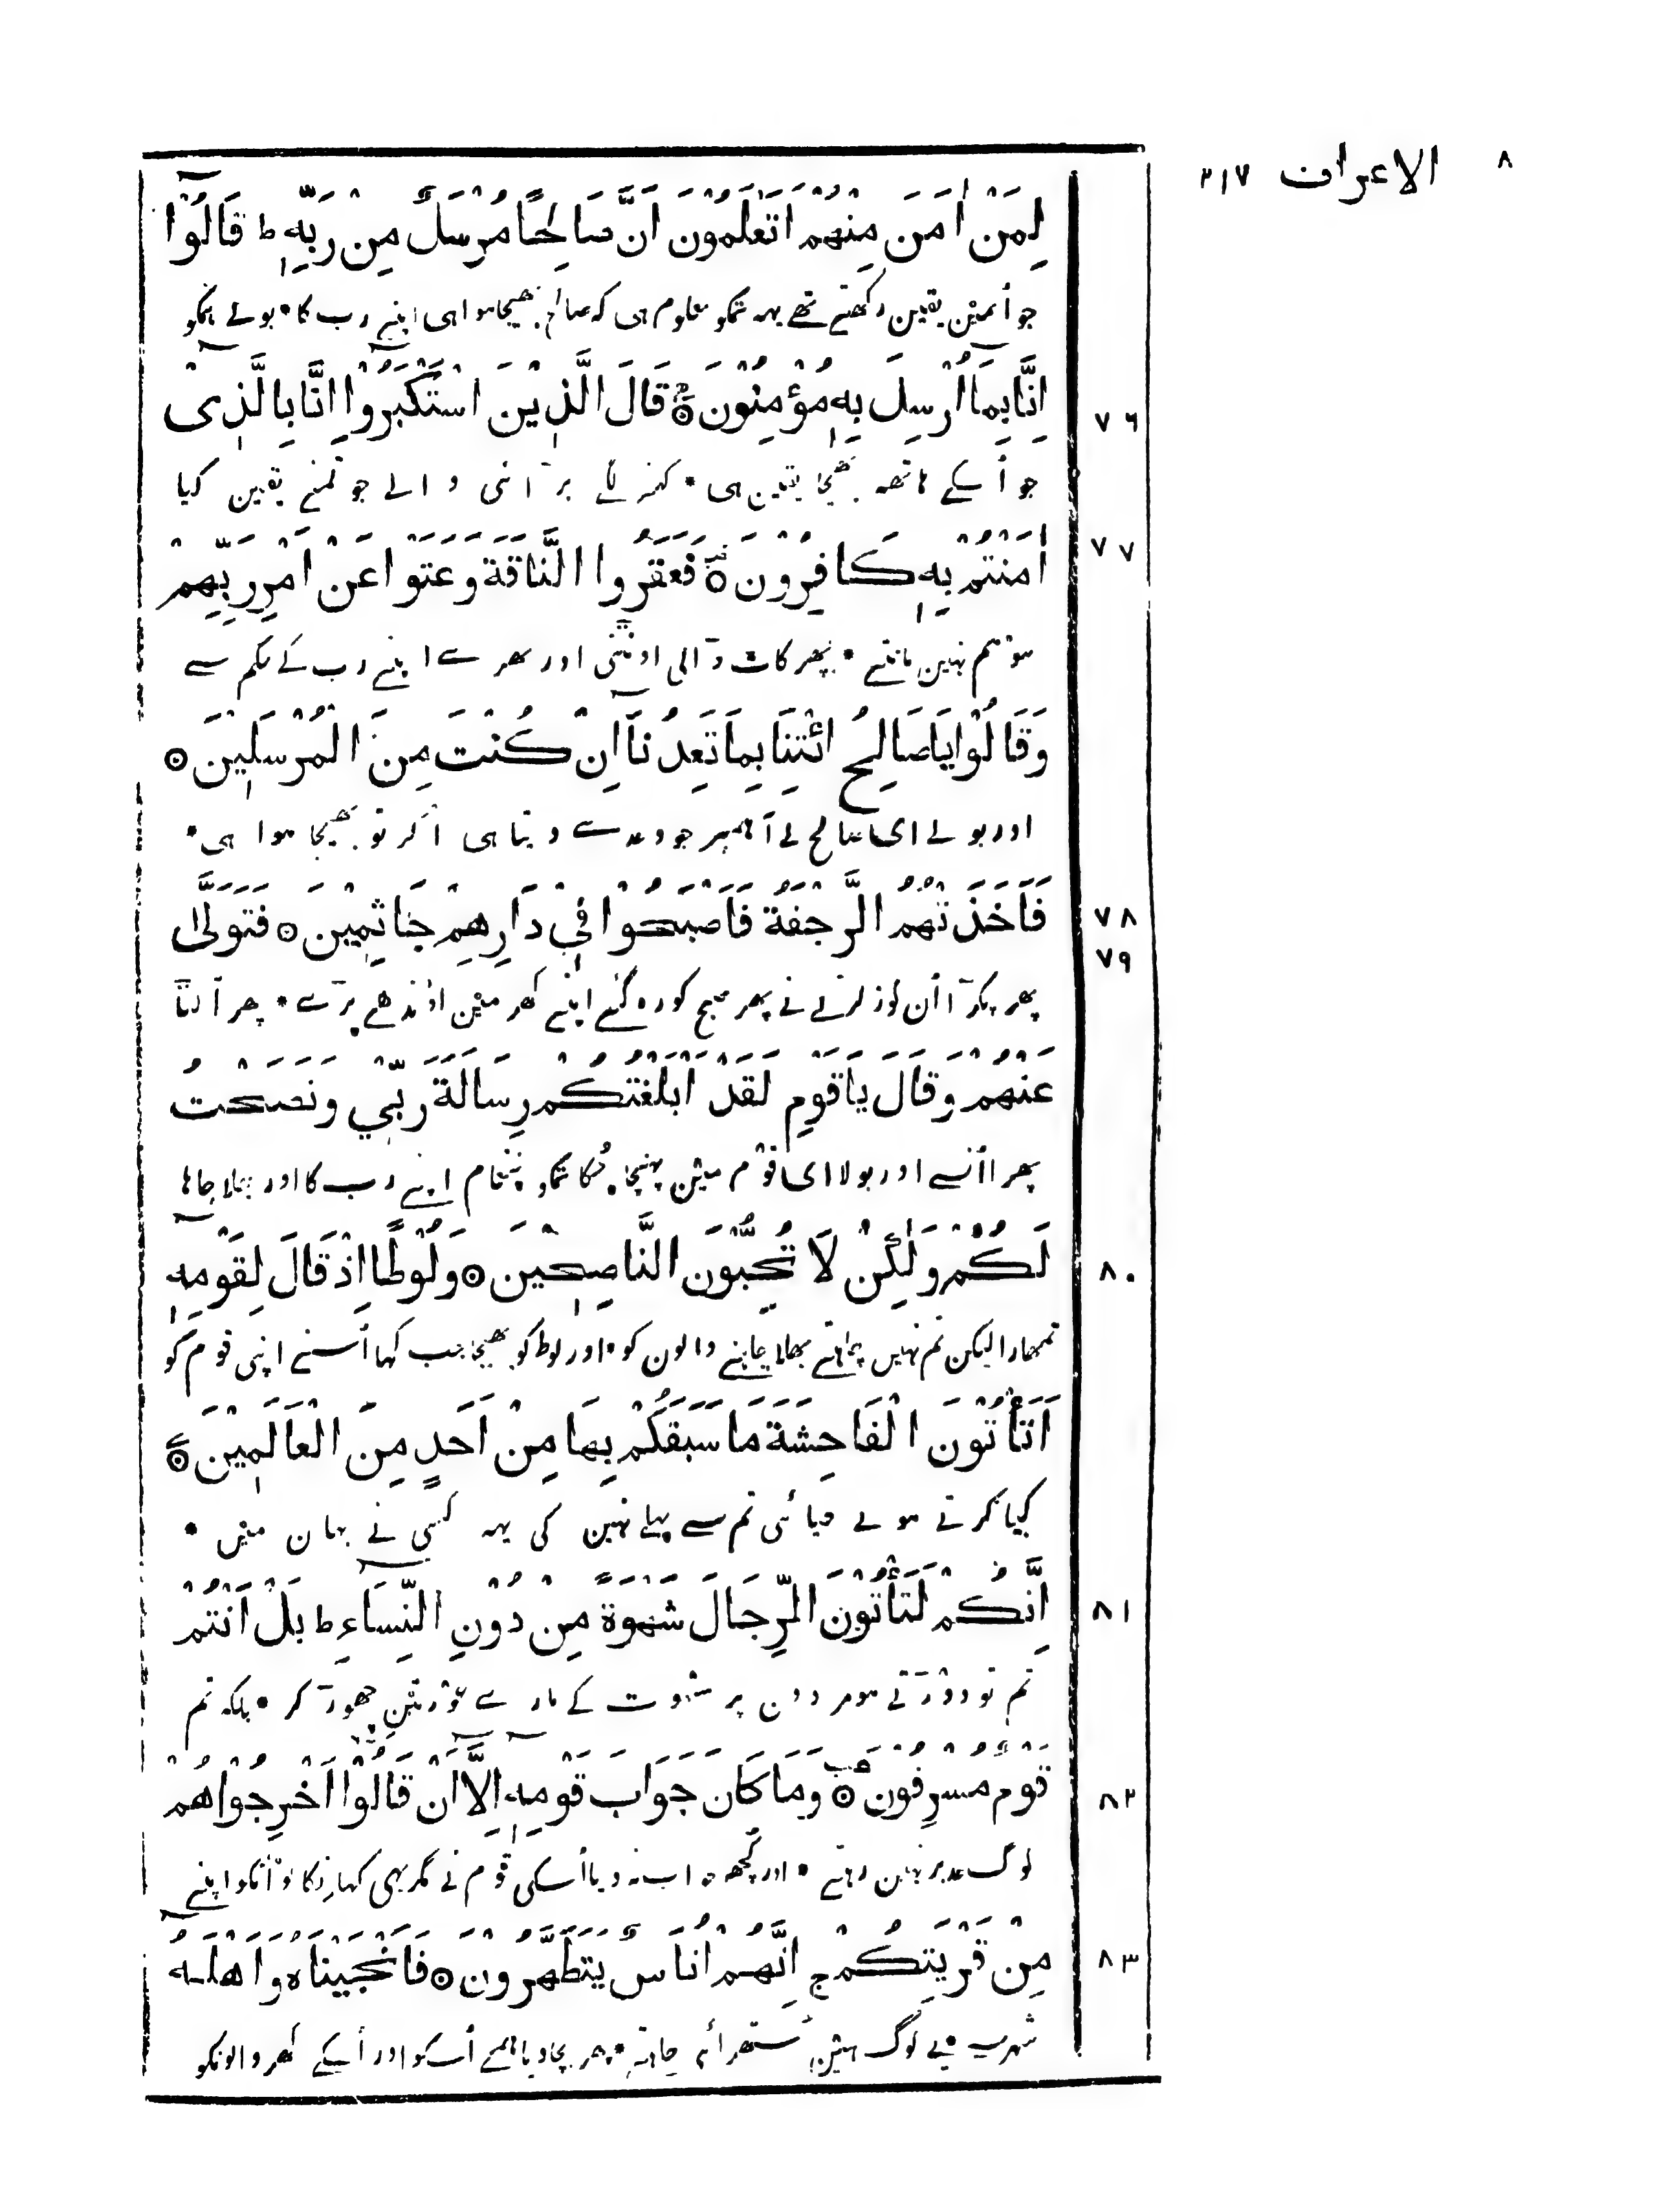 ٨ الاعراف ٣١٧
لِمَنْ اٰمَنَ مِنْهُمْ اَتَعْلَمُوْنَ اَنَّ صَالِحًا مُرْسَلٌ مِنْ رَبِّهٖ ط قَالُوْٓا
جو اُنمین یقین رکھتے تھے یہہ تمکو معلوم ہی کہ صالح بھیجا ہوا ہی اپنے رب کا • بولے ہمکو
اِنَّا بِمَٓا اُرْسِلَ بِهٖ مُؤْمِنُوْنَ ۞ قَالَ الَّذِيْنَ اسْتَكْبَرُوْٓا اِنَّا بِالَّذِيْٓ ٧٦
جو اُسکے ہاتھہ بھیجا یقین ہی • کہنے لگے برآئی والے جو تمنے یقین کیا
اٰمَنْتُمْ بِهٖ كَافِرُوْنَ ۞ فَعَقَرُوا النَّاقَةَ وَعَتَوْا عَنْ اَمْرِ رَبِّهِمْ ٧٧
سو ہم نہین مانتے • پھر کات دآلی اونٹنی اور پھرے اپنے رب کے حکم سے
وَقَالُوْا يَا صَالِحُ ائْتِنَا بِمَا تَعِدُنَٓا اِنْ كُنْتَ مِنَ الْمُرْسَلِيْنَ ۞
اور بولے ای صالح لے آ ہمپر جو وعدے دیتا ہی اگر تو بھیجا ہوا ہی •
فَاَخَذَتْهُمُ الرَّجْفَةُ فَاَصْبَحُوْا فِيْ دَارِهِمْ جَاثِمِيْنَ ۞ فَتَوَلّٰى ٧٨ ٧٩
پھر پکرآ اُن کو زلزلے نے پھر صبح کو رہ گئے اپنے گھر مین اوندھے پرے • پھر اُلٹا
عَنْهُمْ وَقَالَ يَا قَوْمِ لَقَدْ اَبْلَغْتُكُمْ رِسَالَةَ رَبِّيْ وَنَصَحْتُ
پھرا اُنسے اور بولا ای قوم مین پہنچا چکا تمکو پیغام اپنے رب کا اور بھلا چاہا
لَكُمْ وَلٰكِنْ لَا تُحِبُّوْنَ النَّاصِحِيْنَ ۞ وَلُوْطًا اِذْ قَالَ لِقَوْمِهٖٓ ٨٠
تمھارا لیکن تم نہیں چاہتے بھلا چاہنے والون کو • اور لوط کو بھیجا جب کہا اُسنے اپنی قوم کو
اَتَأْتُوْنَ الْفَاحِشَةَ مَا سَبَقَكُمْ بِهَا مِنْ اَحَدٍ مِنَ الْعَالَمِيْنَ ۞
کیا کرتے ہو بے حیائی تم سے پہلے نہین کی یہہ کسی نے جہان میں •
اِنَّكُمْ لَتَأْتُوْنَ الرِّجَالَ شَهْوَةً مِنْ دُوْنِ النِّسَٓاءِ ط بَلْ اَنْتُمْ ٨١
تم تو دورتے ہو مردون پر شہوت کے مارے عورتین چھورآ کر • بلکہ تم
قَوْمٌ مُسْرِفُوْنَ ۞ وَمَا كَانَ جَوَابَ قَوْمِهٖٓ اِلَّٓا اَنْ قَالُوْٓا اَخْرِجُوْاهُمْ ٨٢
لوگ حد پر نہین رہتے • اور کچھہ جواب نہ دیا اُسکی قوم نے مگر یہی کہا نکالو اُنکو اپنے
مِنْ قَرْيَتِكُمْ ج اِنَّهُمْ اُنَاسٌ يَتَطَهَّرُوْنَ ۞ فَاَنْجَيْنَاهُ وَاَهْلَهٗٓ ٨٣
شہر سے یے لوگ ہیں ستھرائی چاہتے • پھر بچا دیا ہمنے اُسکو اور اُسکے گھر والونکو